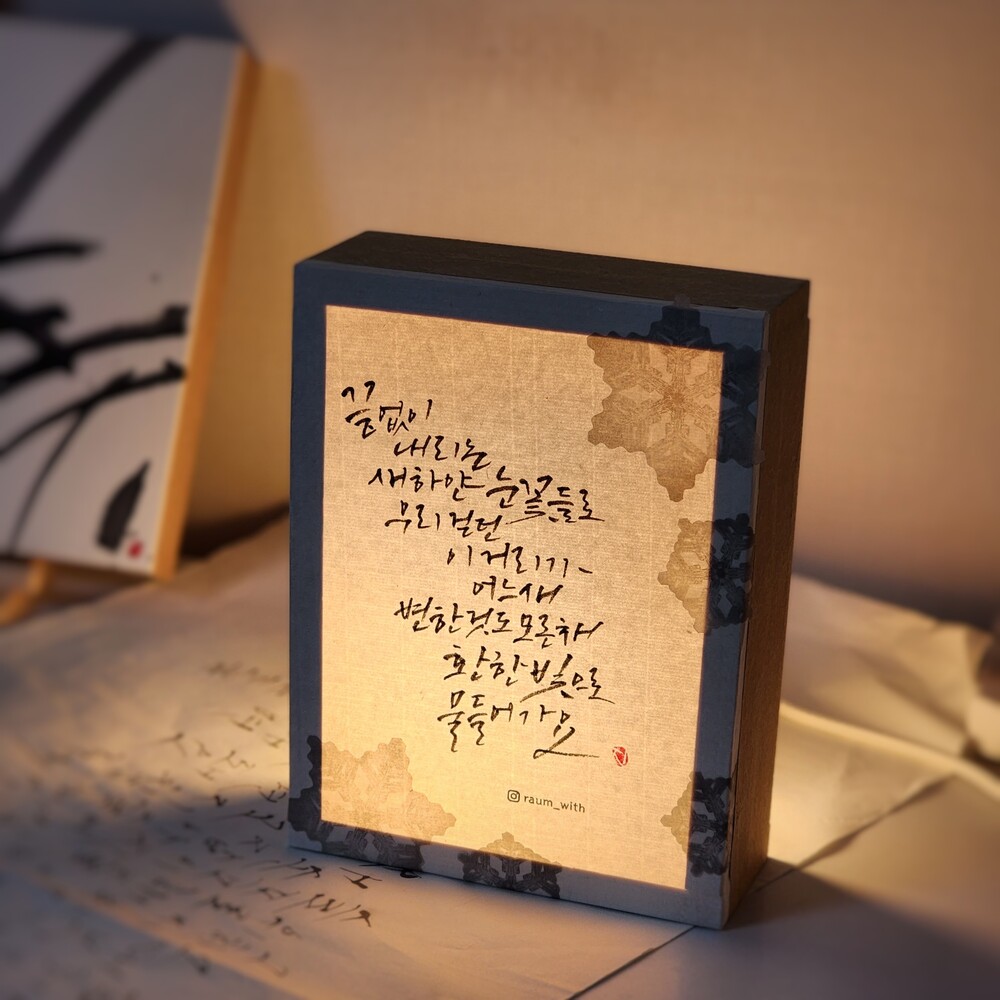 끝없이
내리는
새하얀 눈꽃들로
우리 걷던
이 거리가
어느새
변한것도 모른채
환한 빛으로
물들어가요
raum_with